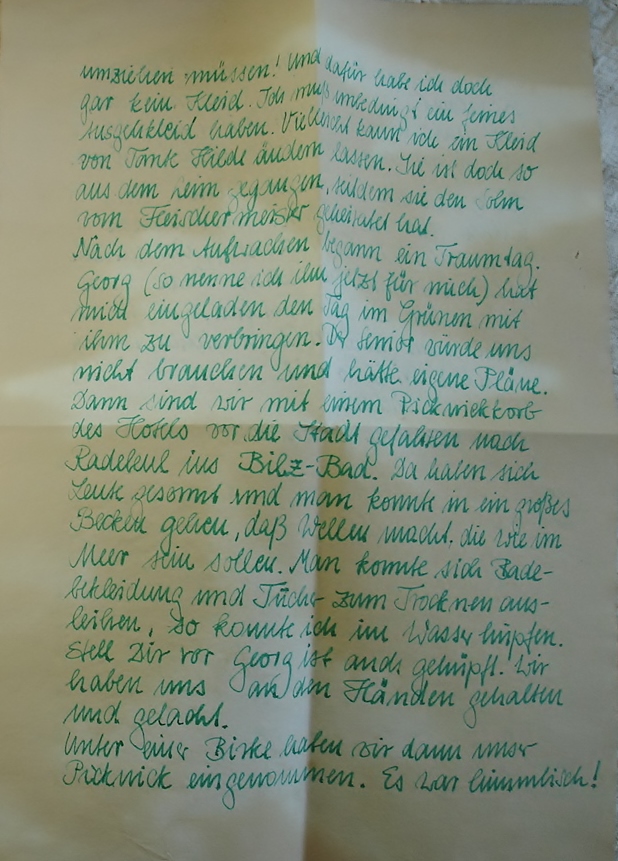 umziehen müssen! Und dafür habe ich doch
gar kein Kleid. Ich muß unbedingt ein feines
Ausgehkleid haben. Vielleicht kann ich ein Kleid
von Tante Hilde ändern lassen. Sie ist doch so
aus dem Leim gegangen, seitdem sie den Sohn
vom Fleischermeister geheiratet hat.
Nach dem Aufwachen begann ein Traumtag.
Georg (so nenne ich ihn jetzt für mich) hat
mich eingeladen den Tag im Grünen mit
ihm zu verbringen. Der Senior würde uns
nicht brauchen und hätte eigene Pläne.
Dann sind wir mit einem Picknickkorb
des Hotels vor die Stadt gefahren nach
Radebeul ins Bilz-Bad. Da haben sich
Leute gesonnt und man konnte in ein großes
Becken gehen, daß Wellen macht, die wie im
Meer sein sollen. Man konnte sich Bade-
bekleidung und Tücher zum Trocknen aus-
leihen, so konnte ich im Wasser hüpfen.
Stell Dir vor Georg ist auch gehüpft. Wir
haben uns an den Händen gehalten
und gelacht.
Unter einer Birke haben wir dann unser
Picknick eingenommen. Es war himmlisch!